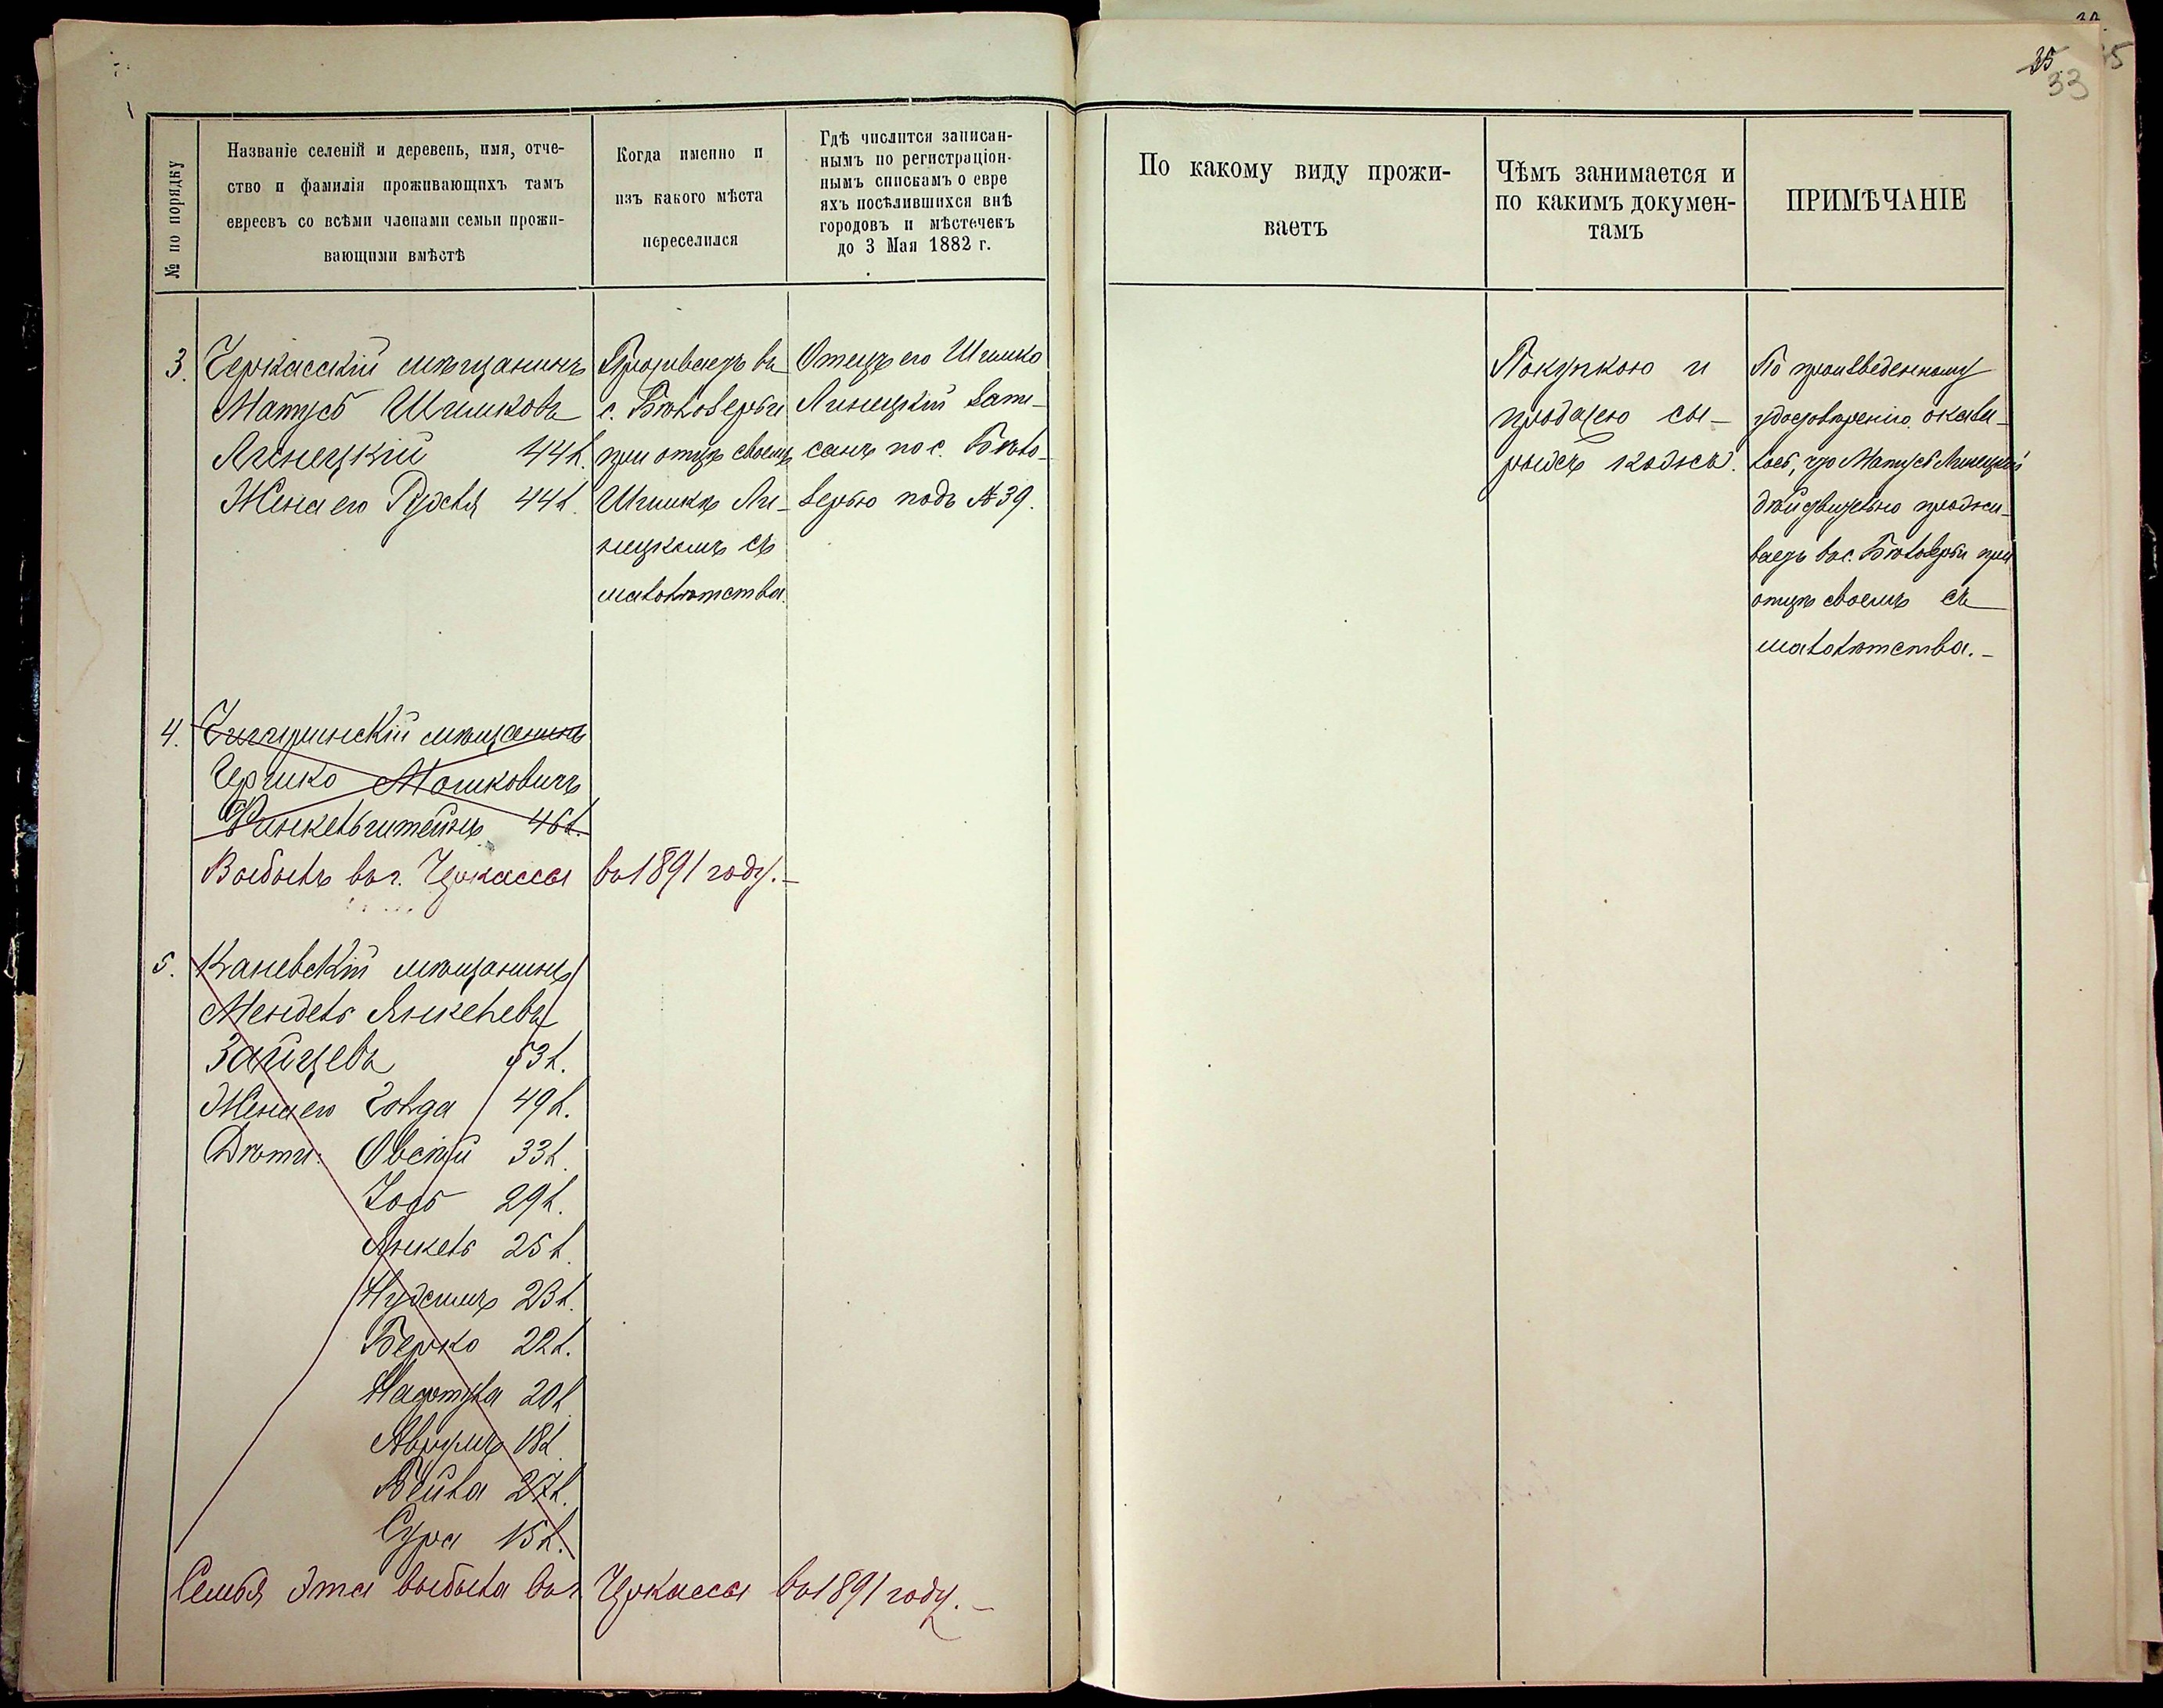 35
33
№ по порядку
Названіе селеній и деревень, имя, отче-
ство и фамилія проживающихъ тамъ
евреевъ со всѣми членами семьи прожи-
вающими вмѣстѣ
Когда именно и
изъ какого мѣста
переселился
Гдѣ числится записан-
нымъ по регистраціон-
нымъ спискамъ о евре
яхъ посѣлившихся внѣ
городовъ и мѣстечекъ
до 3 Мая 1882 г.
По какому виду прожи-
ваетъ
Чѣмъ занимается и
по какимъ докумен-
тамъ
ПРИМѢЧАНІЕ
3.
Черкасскій мѣщанинъ
Матусъ Шмиковъ
Линецкій 44 л.
Жена его Рухля 44 л.
Проживаетъ въ
с. Бѣловерби
при отцѣ своемъ
Шмикѣ Ли-
нецкомъ съ
малолѣтства.
Отецъ его Шмико
Линецкій запи-
санъ по с. Бѣло-
вербю подъ № 39.
Покупкою и
продажею сы-
рыхъ кожъ.
По произведенному
удостовѣренію оказа-
лось, что Матусъ Линецкій
дѣйствительно прожи-
ваетъ въ с. Бѣловерби при
отцѣ своемъ съ
малолѣтства.-
4.
Чигиринскій мѣщанинъ
Гершко Мошковичъ
Финкельштейнъ 46 л.
Выбылъ въ г. Черкассы въ 1891 году.-
5.
Каневскій мѣщанинъ
Мендель Янкелевъ
Зайцевъ 53 л.
Жена его Голда 49 л.
Дѣти: Овсѣй 33 л.
Іось 29 л.
Янкель 25 л.
Нухимъ 23 л.
Берко 22 л.
Нафтула 20 л.
Аврумъ 18 л.
Бейла 27 л.
Сура 15 л.
Семья эта выбыла въ г. Черкассы въ 1891 году.-